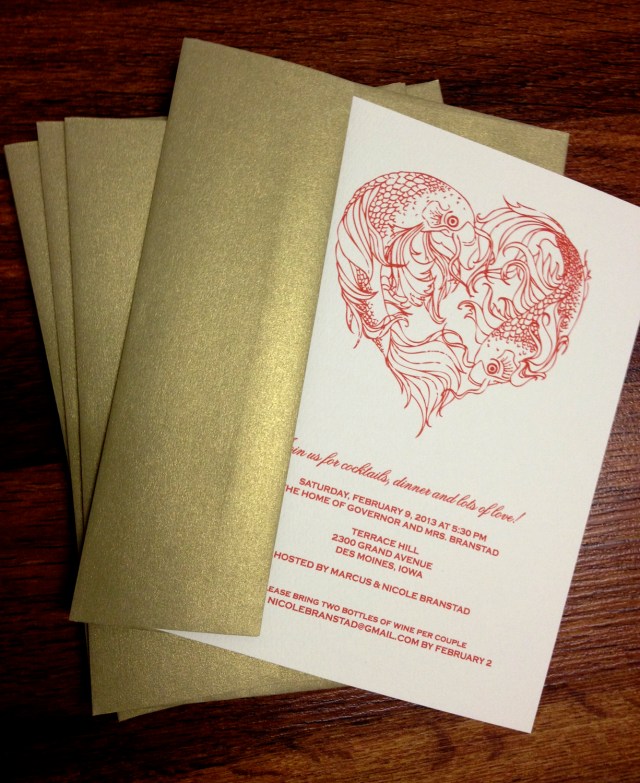 us for cocktails, dinner and lots of love!
SATURDAY, FEBRUARY 9, 2013 AT 5:30 PM
THE HOME OF GOVERNOR AND MRS. BRANSTAD
TERRACE HILL
2300 GRAND AVENUE
DES MOINES, IOWA
HOSTED BY MARCUS & NICOLE BRANSTAD
BRING TWO BOTTLES OF WINE PER COUPLE
NICOLEBRANSTAD@GMAIL.COM BY FEBRUARY 2